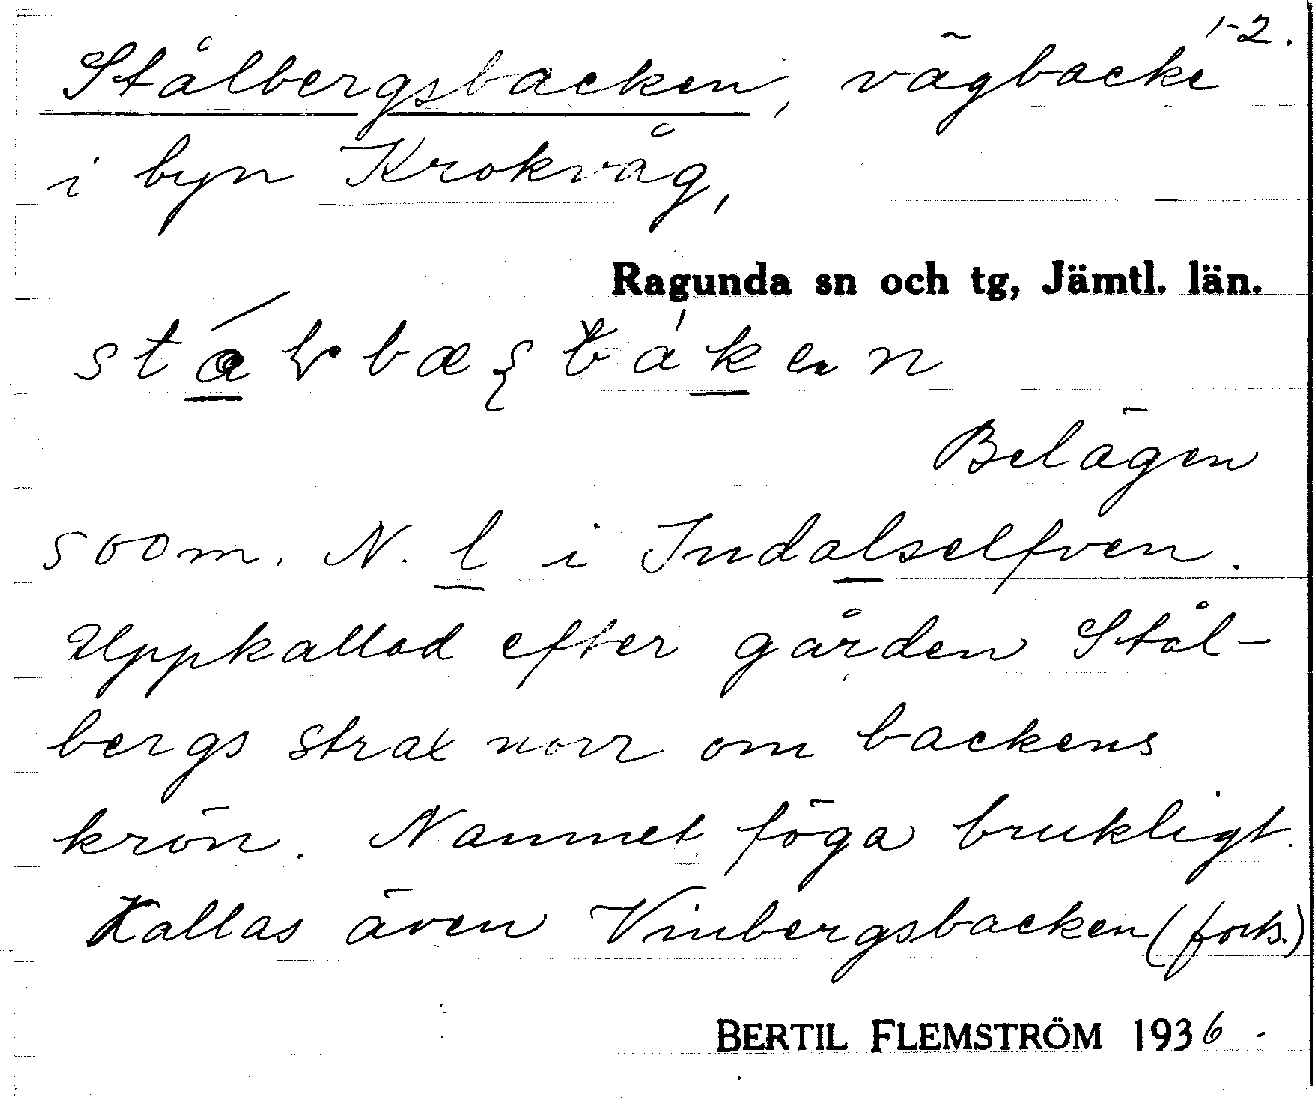 1-2.
Stålbergsbacken, vägbacke
i byn Krokvåg,
Ragunda sn och tg, Jämtl. län.
Belägen
500 m. N. l i Indalselfven.
Uppkallad efter gården Stål-
bergs strax norr om backens
krön. Namnet föga brukligt.
Kallas även Vinbergsbacken (forts.)
BERTIL FLEMSTRÖM 1936.